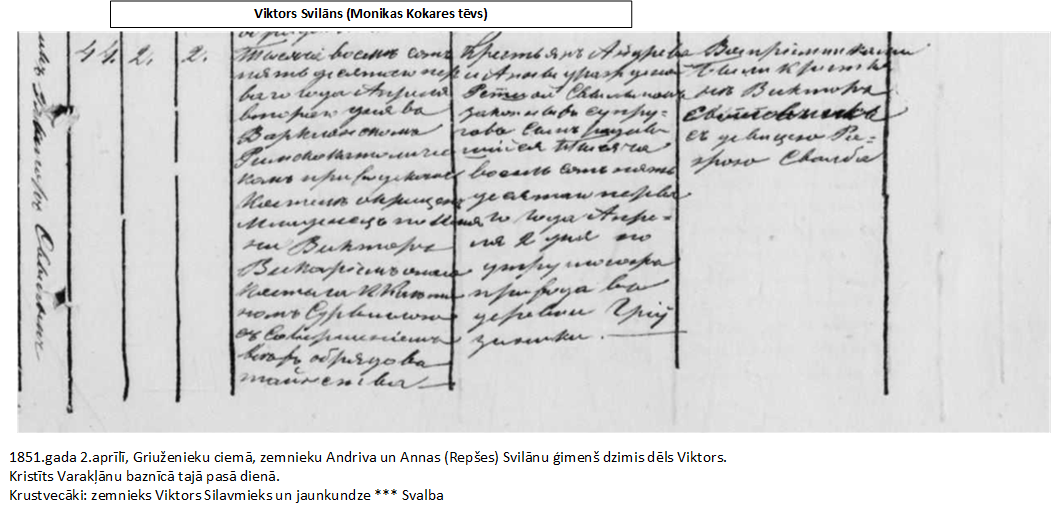 Viktors Svilāns (Monikas Kokares tēvs)
44. 2. 2.
Тысяча восемь сотъ
пятьдесятаго пер
ваго года Апреля
втораго дня въ
Варклянскомъ
Римскокатоличес
комъ приходскомъ
Костелѣ окрещенъ
младенецъ по имя
ни Викторъ
Викаріемъ онаго
Костела
съ Совершеніемъ
всѣхъ обрядовъ
таинства
Крестьянъ Андрея
и Анны урожденной
Свилановъ
законныхъ супру-
говъ сынъ родив
шійся тысяча
восемь сотъ пять
десятаго перва
го года Апре-
ля 2 дня по
утру
прихода въ
деревни Грiу
зинки.
Воспріемниками
были крестья
нъ Викторъ
съ девицею
Свалба
1851.gada 2.aprīlī, Griuženieku ciemā, zemnieku Andriva un Annas (Repšes) Svilānu ģimenš dzimis dēls Viktors.
Kristīts Varakļānu baznīcā tajā pasā dienā.
Krustvecāki: zemnieks Viktors Silavmieks un jaunkundze *** Svalba